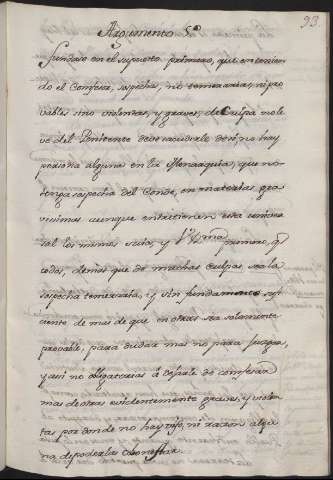 93.
Argumento 5º
fundase en el supuesto primero, que en tenien
do el Confesor, sospechas, no temerarias, ni pro
vables sino violentas, y graves, de Culpa no le
ve del Penitente deve sacudirle desi no hay
persona alguna en la Monarquia, que no
tenga sospecha del Conde, en materias gra
visimas aunque entrasienen esta univer
sal los mismos suios, y V. Rma primero, q
todos, demos que de muchas culpas sea la
sospecha temeraria, y sin fundamento sufi
ciente demas de que en otras sea solamente
provable, para dudar mas no para juzgar,
y asi no obligatorias á dejarle de confesar
mas de otras evidentemente graves, y violen
tas por donde no hay ni razon algu
na de poderlas